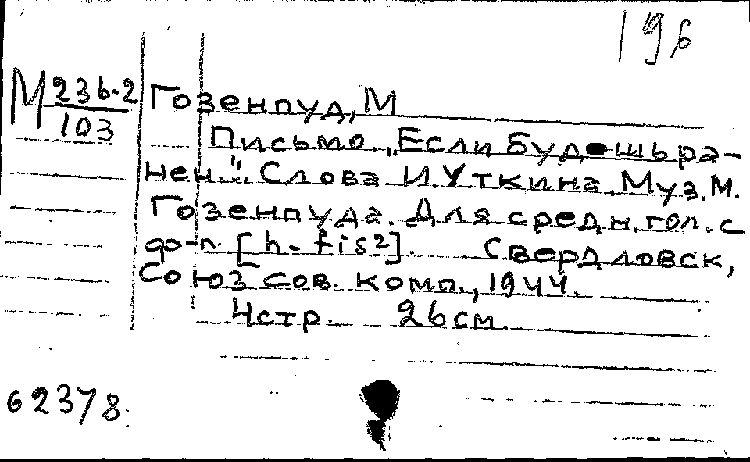 196
М 236-2
103
Гозенпуд, М
Письмо „Если будешь ра-
нен". Слова И. Уткина. Муз. М.
Гозенпуда. Для средн. гол. с
ф-п. [h- fis2]. Свердловск,
Союз сов. комп., 1944.
4стр. 26см.
62378.